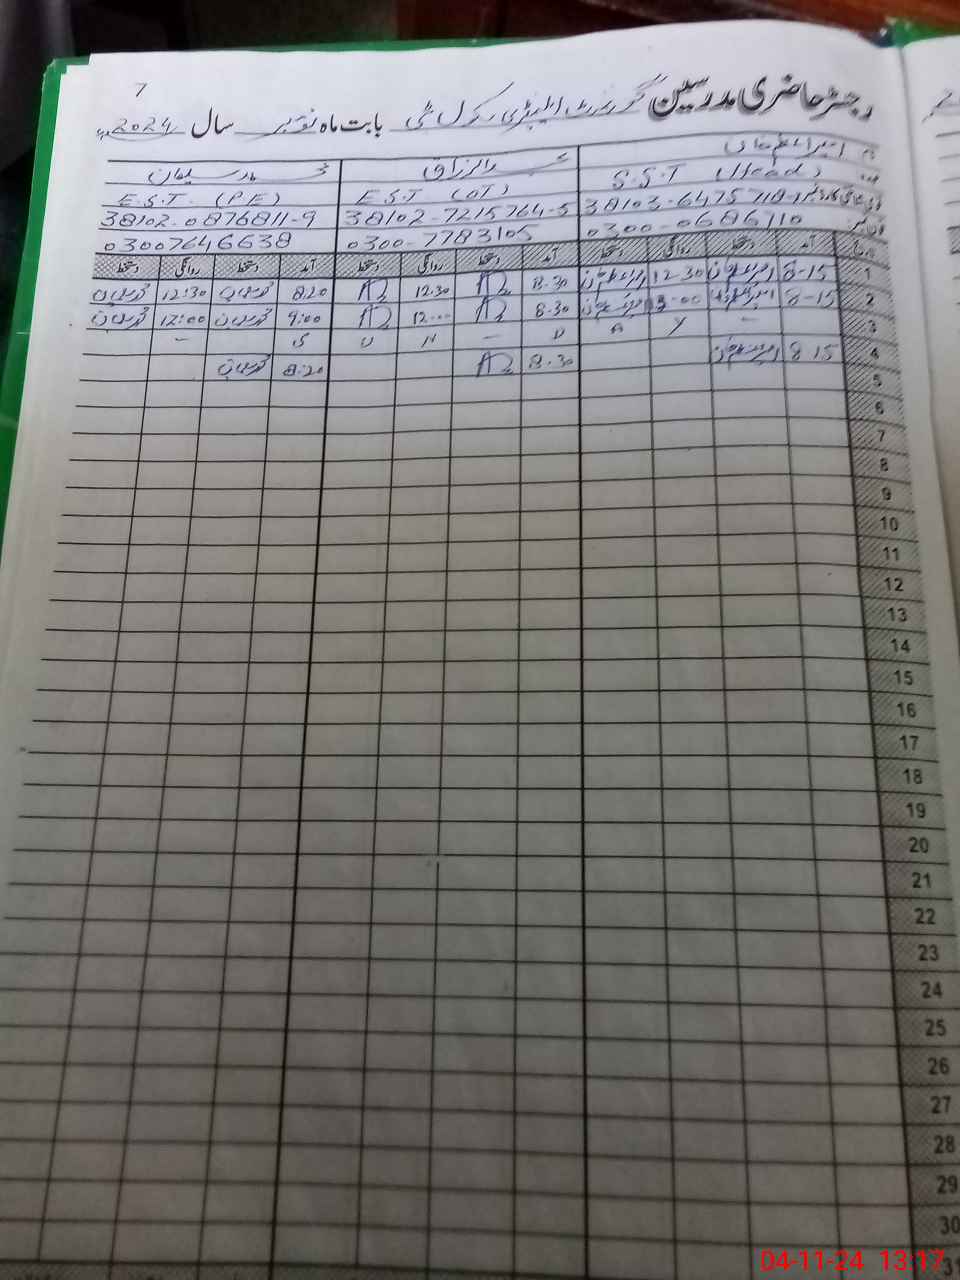 7
رجسٹر حاضری مدرسین گورنمنٹ ایلیمنٹری سکول بابت ماہ نومبر سال 2024ء
نام امیر اعظم خان
عبدالرزاق
محمد سلیمان
عہدہ S.S.T (Head)
E.S.T (OT)
E.S.T. (P.E)
38103-6475718-1
38102-7215764-5
38102-0876811-9
فون نمبر 0300-0686710
0300-7783105
03007646638
تاریخ آمد دستخط روانگی دستخط آمد دستخط روانگی دستخط آمد دستخط روانگی دستخط
1 8-15 12-30 8.30 12.30 8:20 محمد سلیمان 12:30 محمد سلیمان
2 8-15 8.30 12.00 9:00 محمد سلیمان 12:00 محمد سلیمان
3 – Y A D – N U S –
4 8-15 8.30 8:20 محمد سلیمان
5
6
7
8
9
10
11
12
13
14
15
16
17
18
19
20
21
22
23
24
25
26
27
28
29
30
31
04-11-24 13:17